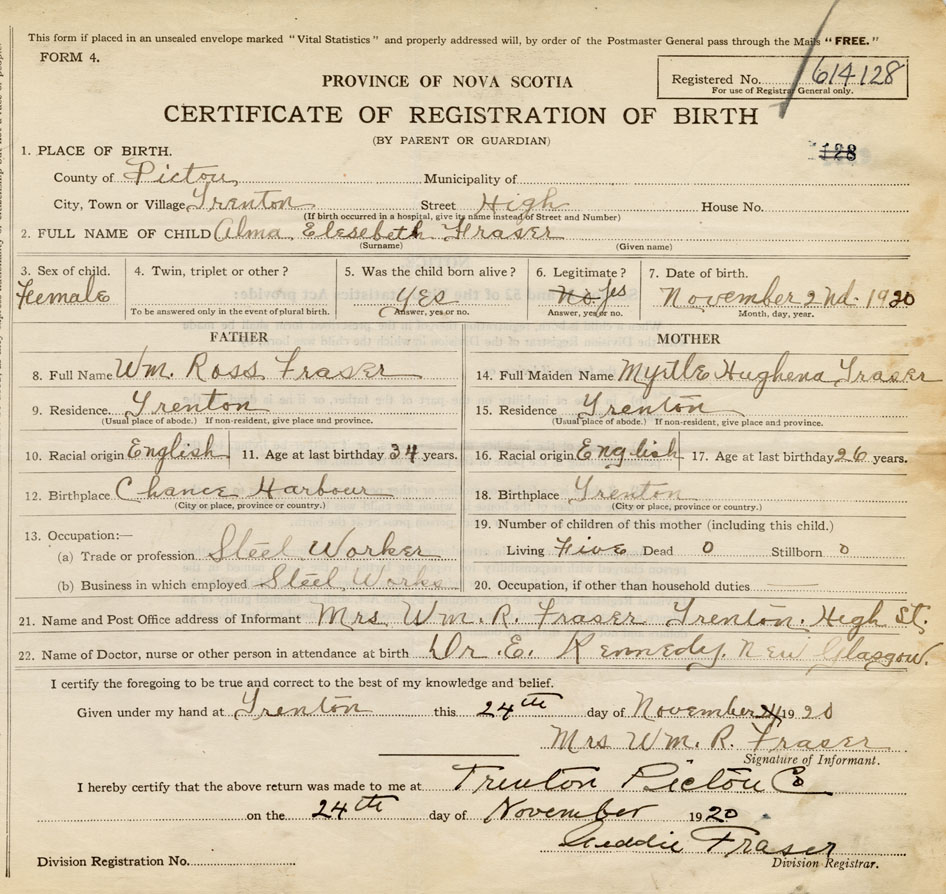 This form if placed in an unsealed envelope marked "Vital Statistics" and properly addressed will, by order of the Postmaster General pass through the Mails "FREE."
FORM 4.
PROVINCE OF NOVA SCOTIA
Registered No. 614128
For use of Registrar General only.
CERTIFICATE OF REGISTRATION OF BIRTH
(BY PARENT OR GUARDIAN)
1. PLACE OF BIRTH.
128
County of Pictou Municipality of
City, Town or Village Trenton Street High House No.
(If birth occurred in a hospital, give its name instead of Street and Number)
2. FULL NAME OF CHILD Alma Elesebeth Fraser
(Surname) (Given name)
3. Sex of child. 4. Twin, triplet or other? 5. Was the child born alive? 6. Legitimate? 7. Date of birth.
Female Yes No Yes November 2nd. 1920
To be answered only in the event of plural birth. Answer, yes or no. Answer, yes or no. Month, day, year.
FATHER MOTHER
8. Full Name Wm. Ross Fraser 14. Full Maiden Name Myrtle Hughena Fraser
9. Residence. Trenton 15. Residence Trenton
(Usual place of abode.) If non-resident, give place and province. (Usual place of abode.) If non-resident, give place and province.
10. Racial origin English 11. Age at last birthday 34 years. 16. Racial origin English 17. Age at last birthday 26 years.
12. Birthplace Chance Harbour 18. Birthplace Trenton
(City or place, province or country.) (City or place, province or country.)
13. Occupation:— 19. Number of children of this mother (including this child.)
(a) Trade or profession Steel Worker Living Five Dead 0 Stillborn 0
(b) Business in which employed Steel Works 20. Occupation, if other than household duties
21. Name and Post Office address of Informant Mrs Wm. R. Fraser Trenton. High St.
22. Name of Doctor, nurse or other person in attendance at birth Dr. E. Kennedy. New Glasgow.
I certify the foregoing to be true and correct to the best of my knowledge and belief.
Given under my hand at Trenton this 24th day of November 1920
Mrs Wm. R. Fraser
Signature of Informant.
I hereby certify that the above return was made to me at Trenton Pictou Co
on the 24th day of November 1920
Fraser
Division Registration No. Division Registrar.